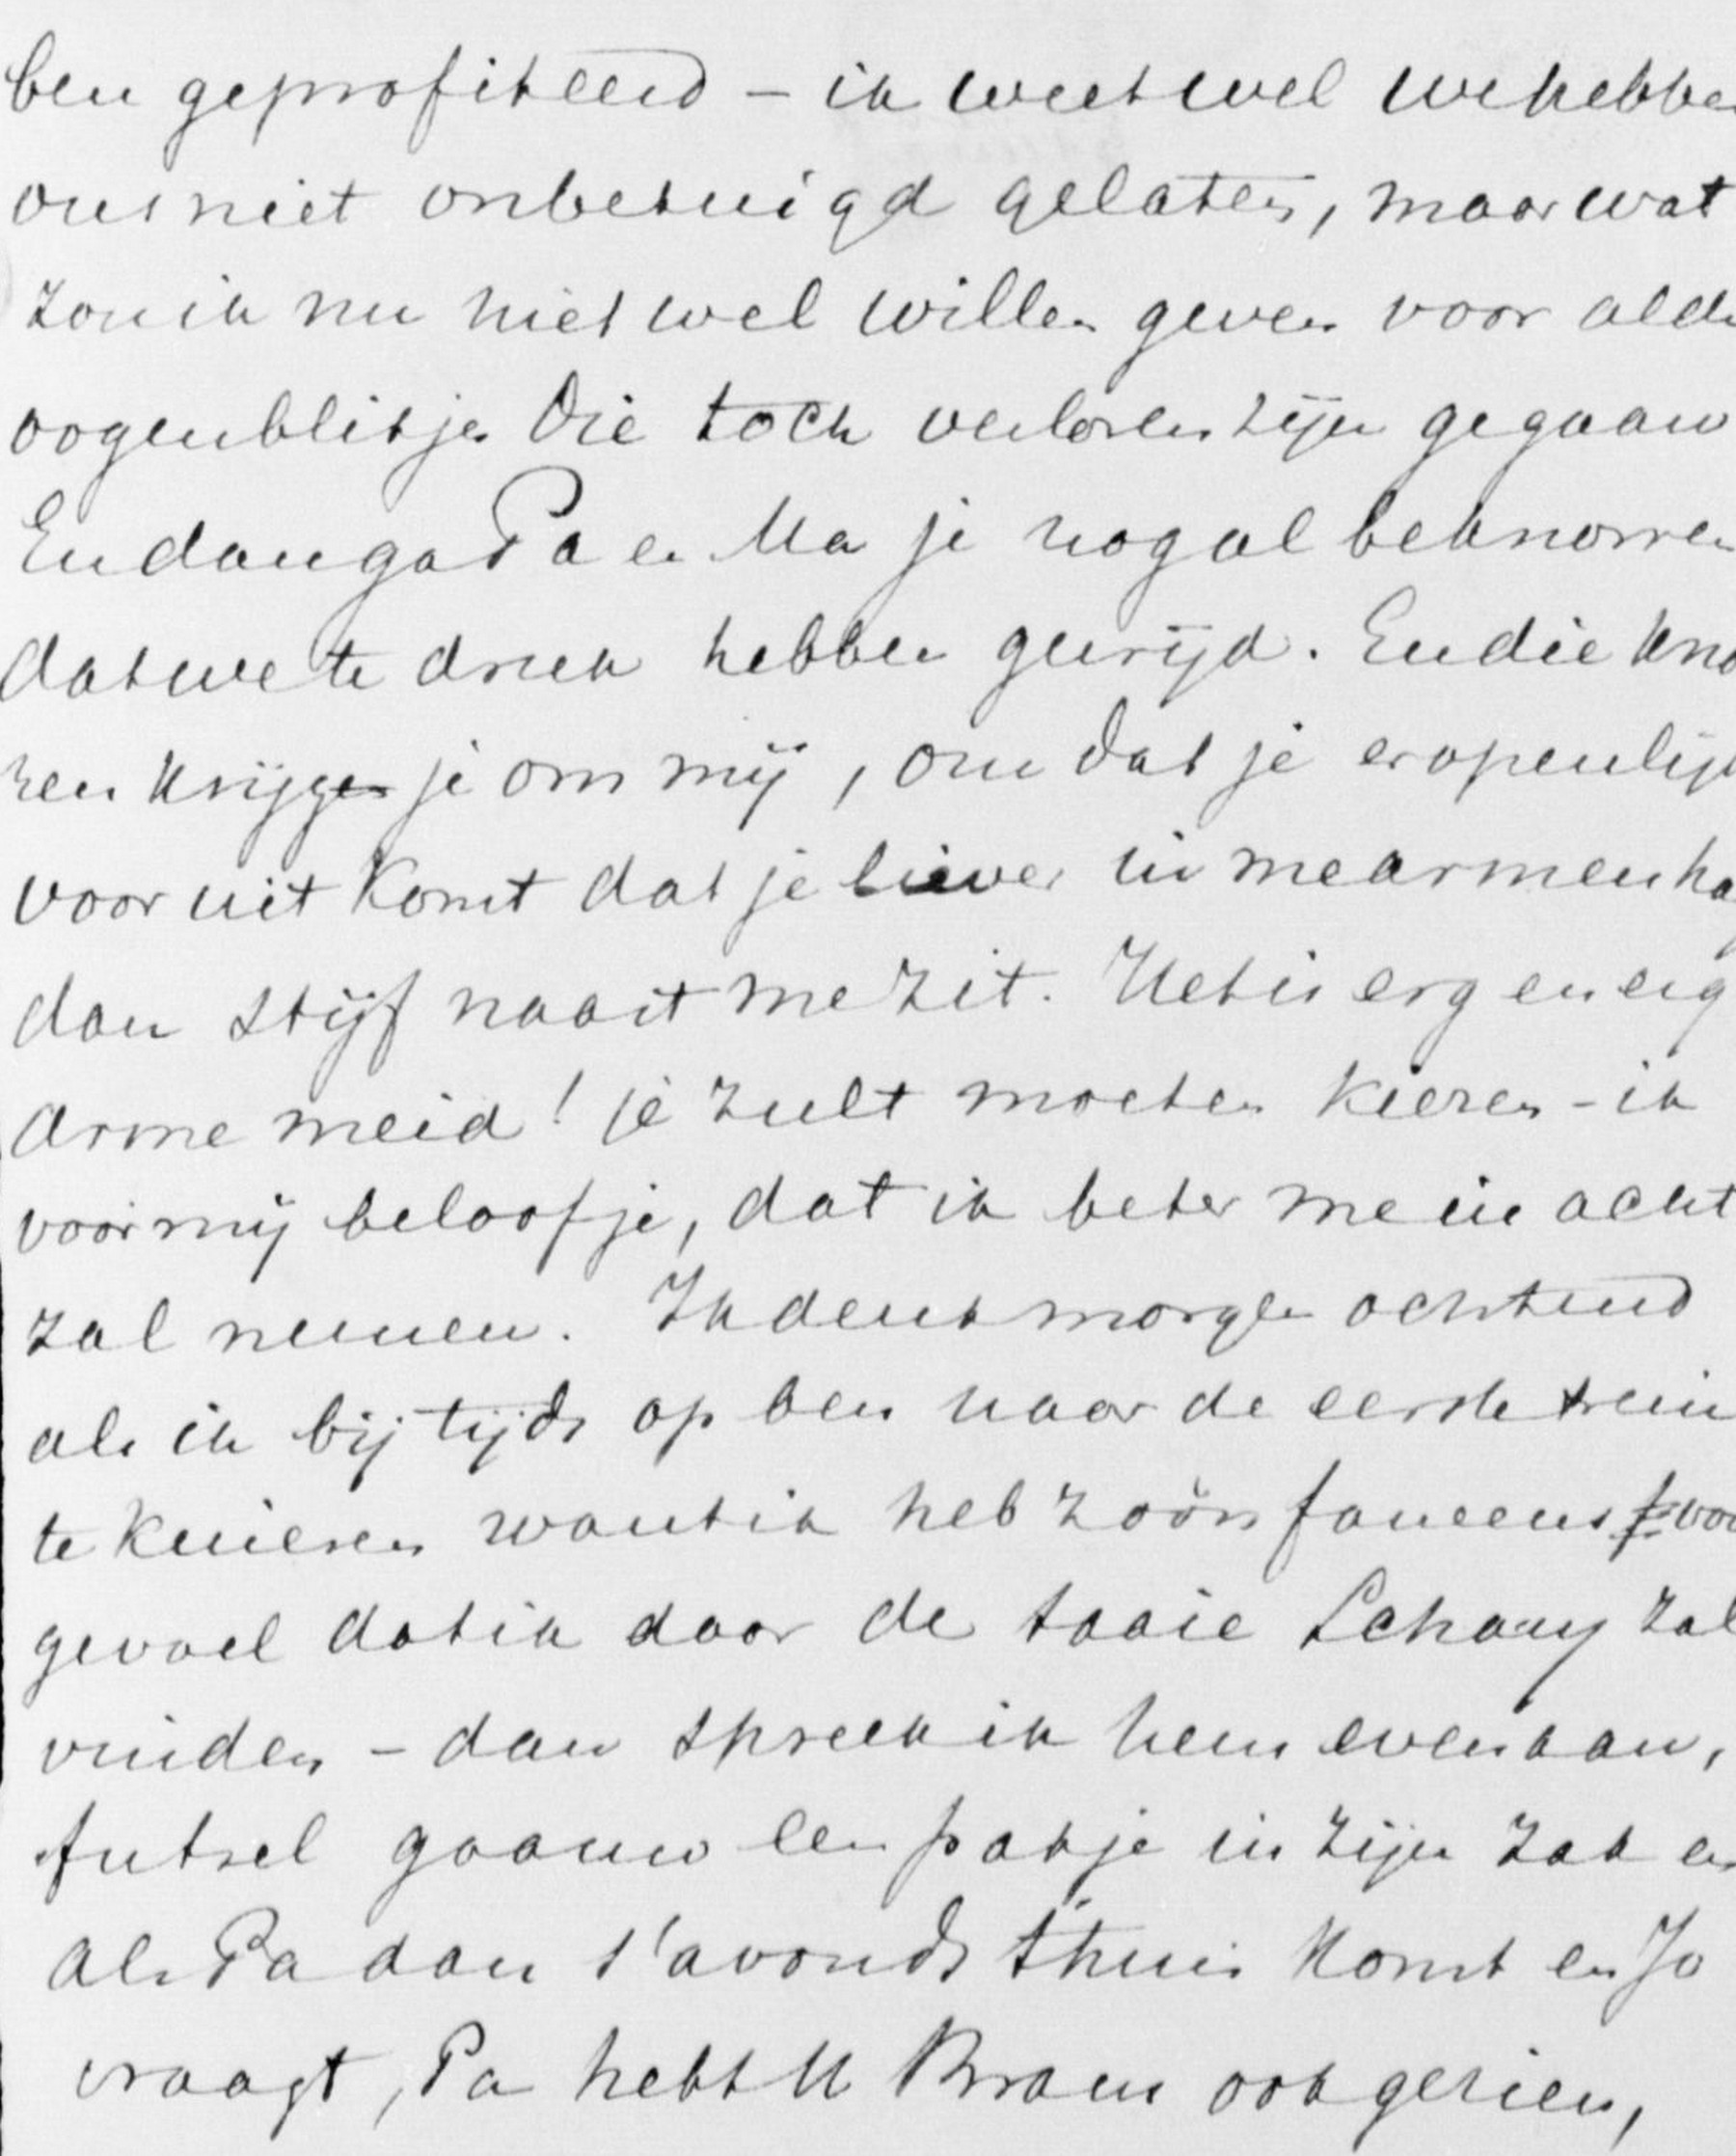 ben geprofiteerd – ik weet wel we hebben
ons niet onbetuigd gelaten, maar wat
zou ik nu niet wel willen geven voor al de
oogenblikjes die toch verloren zijn gegaan
En dan ga Pa en Ma je nogal beknorren
dat we te druk hebben gevrijd. En die kno
ren krijgen je om mij, om dat je er openlijk
voor uit komt dat je liever in me armen ha
dan stijf naast me zit. Het is erg en erg
arme meid! je zult moeten kiezen – ik
voor mij beloof je, dat ik beter me in acht
zal nemen. Ik denk morgen ochtend
als ik bij tijds op ben naar de eerste trein
te kuieren want ik heb zoo'n voor
gevoel dat ik daar de taaie zal
vinden – dan spreek ik hem even aan,
futsel gaauw een pakje in zijn zak en
als Pa dan s'avonds thuis komt en Jo
vraagt, Pa hebt U Bram ook gezien,